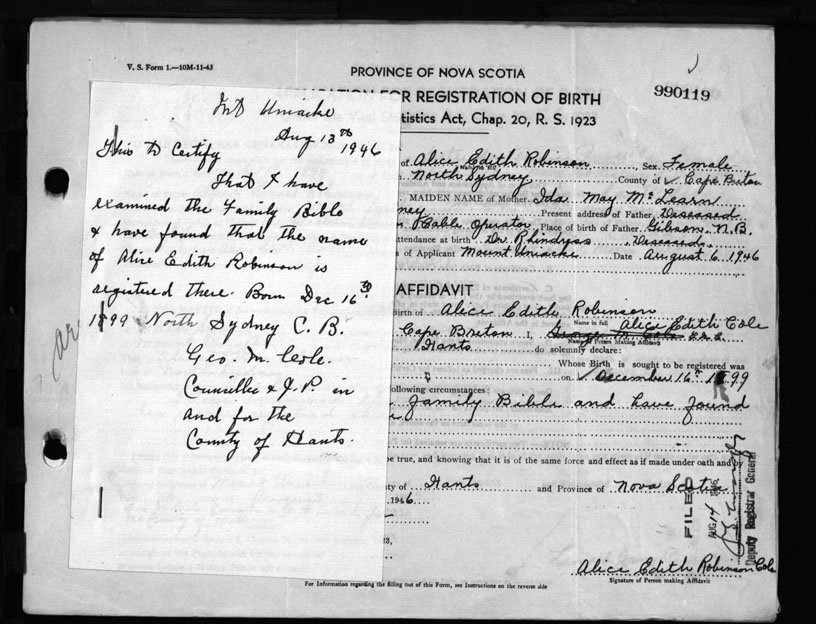 V. S. Form 1.—10M-11-43
PROVINCE OF NOVA SCOTIA
990119
FOR REGISTRATION OF BIRTH
tistics Act, Chap. 20, R. S. 1923
Mt Uniacke
Aug 13th 1946
This to Certify
That I have
examined the Family Bible
& have found that the name
of Alice Edith Robinson is
registered there. Born Dec 16th
1899 North Sydney C. B.
Geo. M. Cole.
Councillor & J. P. in
and for the
County of Hants.
of Alice Edith Robinson Sex Female
North Sydney County of Cape Breton
MAIDEN NAME of Mother Ida May McLearn
ney Present address of Father Deseased
Cable Operator Place of birth of Father Gibson, N.B.
ttendance at birth Dr. Rhindress Deseased
s of Applicant Mount Uniacke Date August 6, 1946
AFFIDAVIT
Birth of Alice Edith Robinson
Name in full
Cape Breton I, George M. Cole Alice Edith Cole
Name of Person Making Affidavit
Hants do solemnly declare:
Whose Birth is sought to be registered was
on December 16th 1899
ollowing circumstances:
family Bible and have found
be true, and knowing that it is of the same force and effect as if made under oath and by
ty of Hants and Province of Nova Scotia
1946
FILED
AUG 14
Deputy Registrar General
1923,
Alice Edith Robinson Cole
Signature of Person making Affidavit
For Information regarding the filling out of this Form, see Instructions on the reverse side